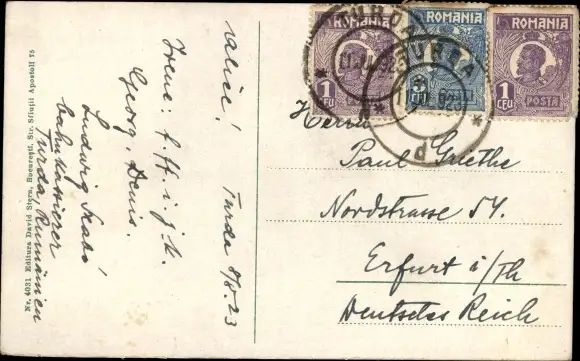 Turda 8/8.23
salice!
Irene: b. H. i. j. k.
Georg, Denis.
Ludwig Szabó
bahnkassierer
Turda Rumänien
No. 4031 Editura David Stern, Bucureşti, Str. Sfinţii Apostoli 75
ROMANIA
1 LEU
POSTA
ROMANIA
3 LEI
ROMANIA
1 LEU
POSTA
TURDA
TURDA
Herrn
Paul Griethe
Nordstrasse 54.
Erfurt i/Th
Deutsches Reich